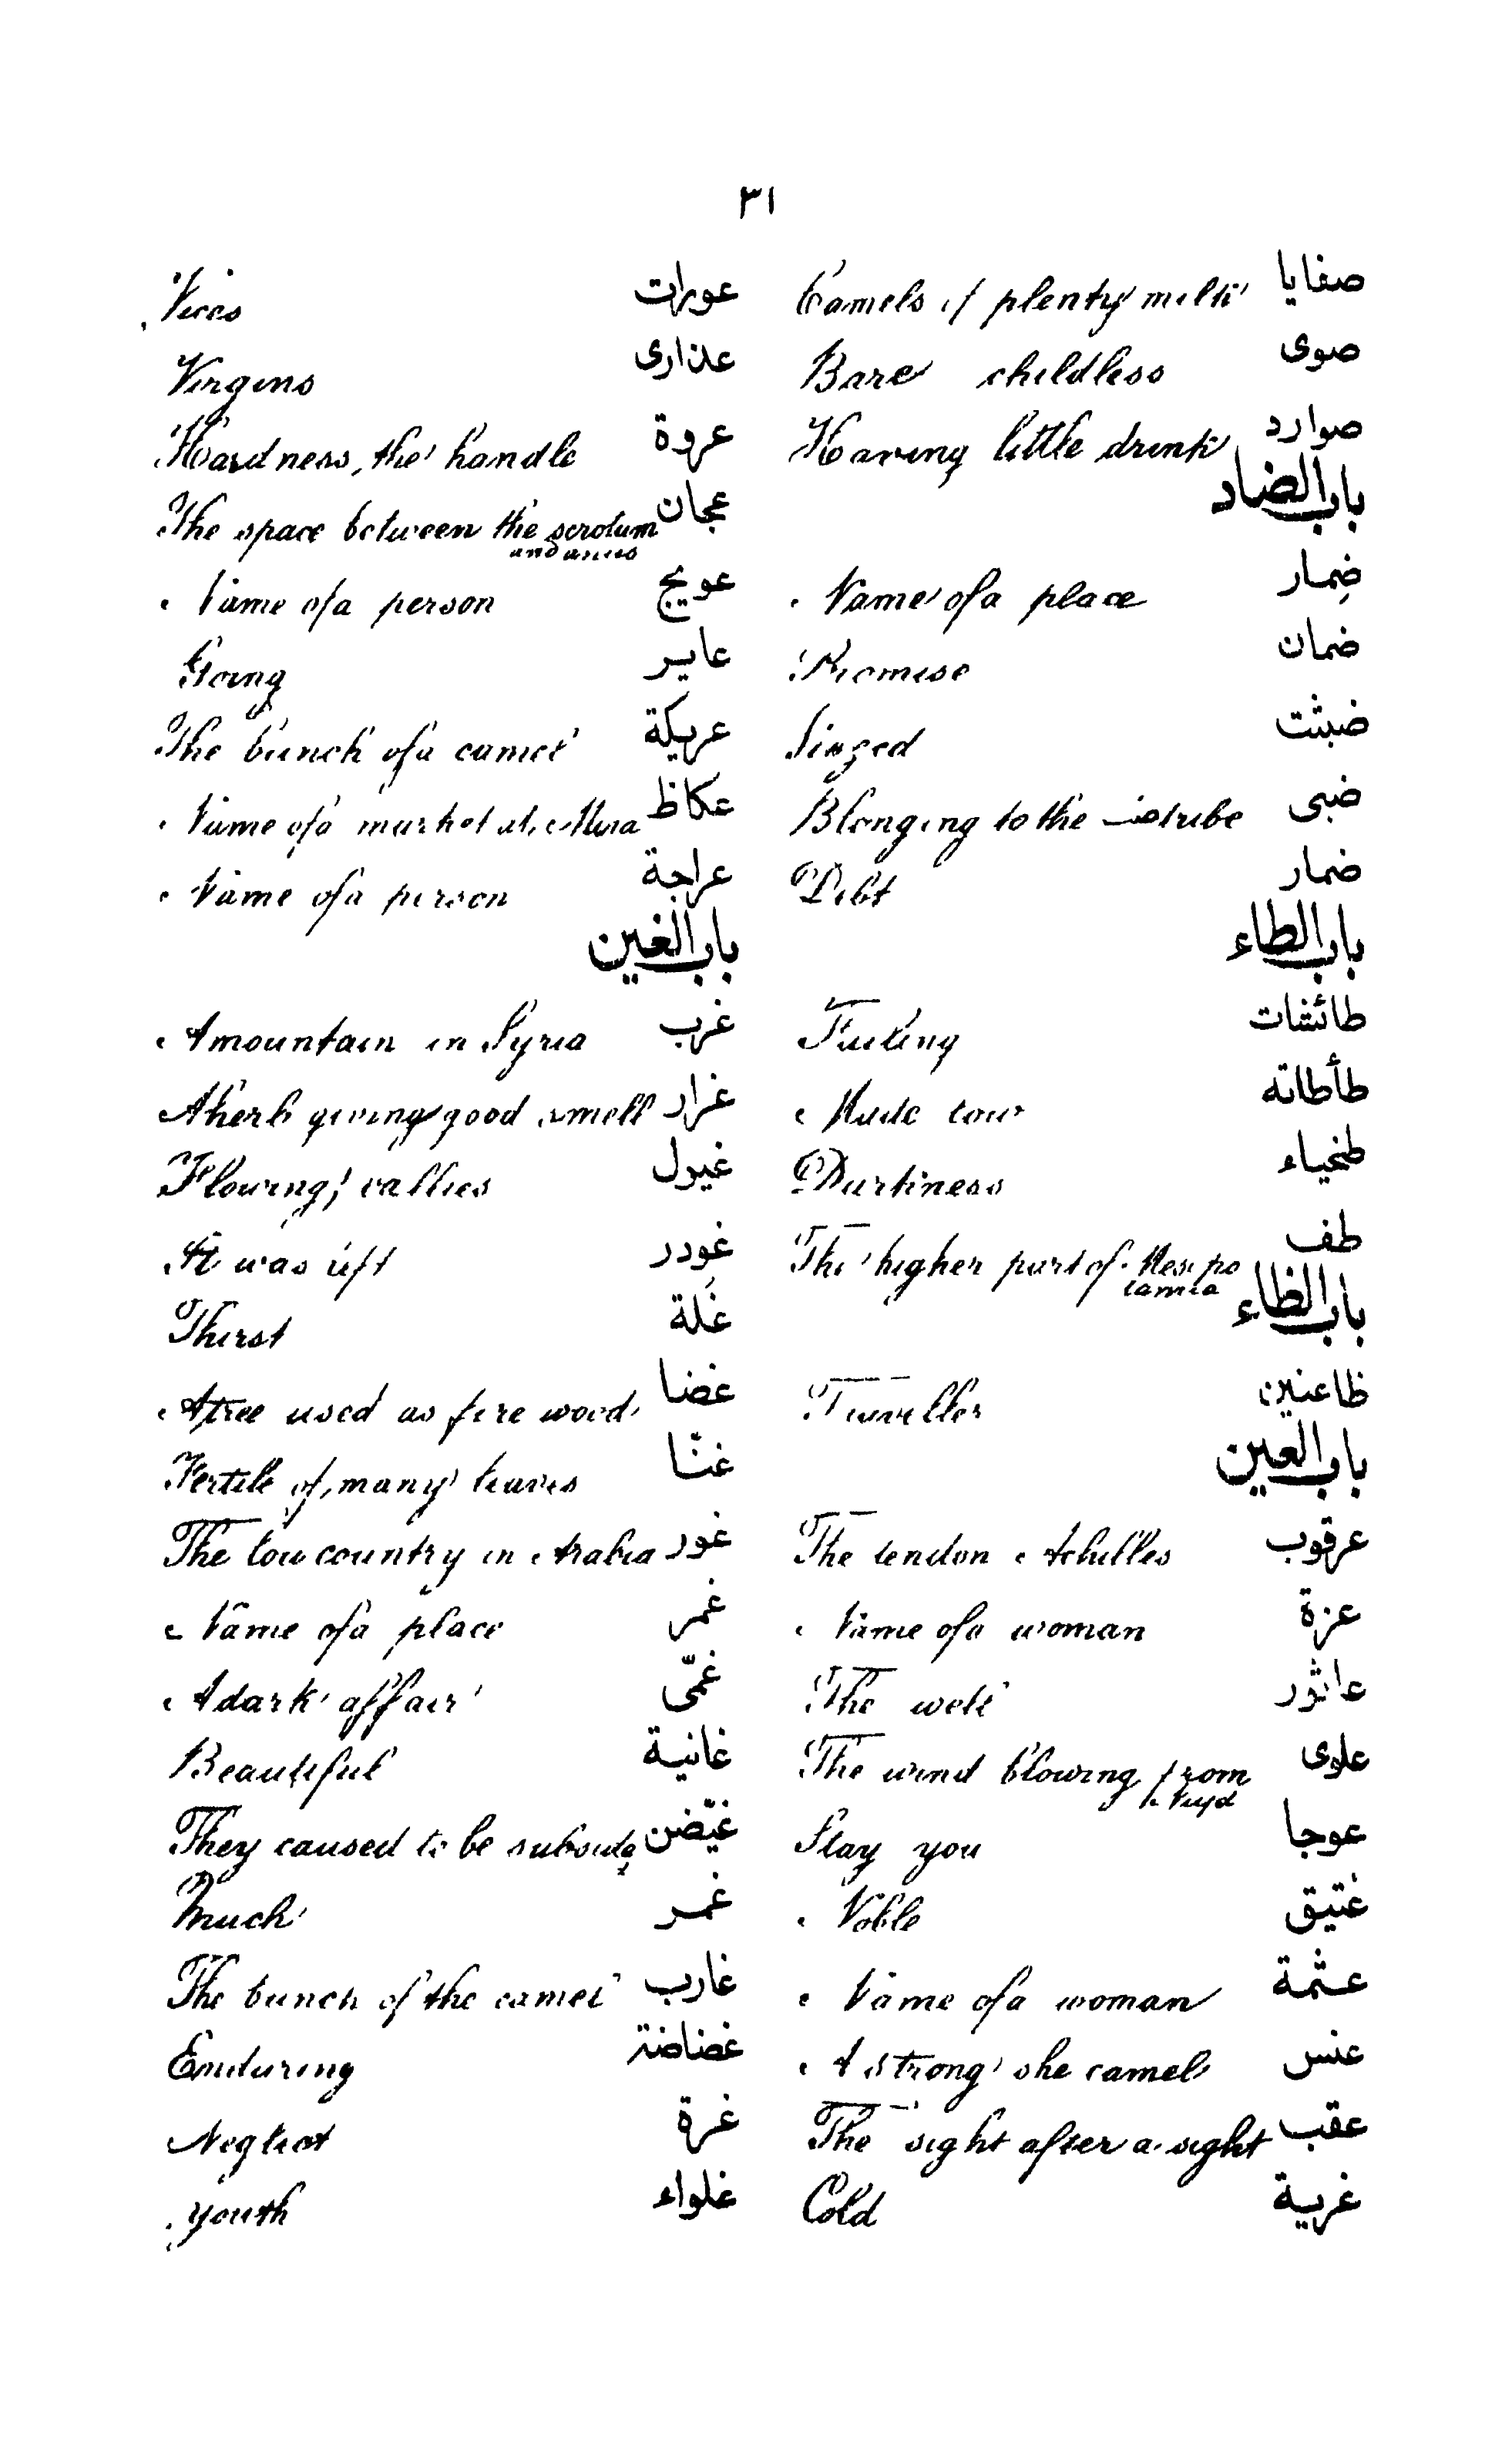 ٣١
صفايا Camels of plenty milk
صوى Bare childless
صوارد Having little drink
باب الضاد
ضِمار Name of a place
ضمان Promise
ضبثت Singed
ضبى Blonging to the tribe
ضمار Debt
باب الطاء
طائشات
طأطاته Made low
طخياء Darkiness
طف The higher part of Mesopo
tamia
باب الظاء
ظاعنين Traveller
باب العين
عرقوب The tendon Achilles
عزة Name of a woman
عاثور The well
علوى The wind blowing from
Nujd
عوجا Stay you
غتيق Noble
عثمة Name of a woman
عنس A strong she camel
عقب The sight after a sight
غريية Cold
عورات Vices
عذارى Virgins
عروة Hardness, the handle
عجان The space between the scrotum
and anus
عويج Name of a person
عاير Going
عريكة The bunch of a camel
عكاظ Name of a market at
عراجة Name of a person
باب الغين
غرب A mountain in Syria
غرار A herb giving good smell
غيول Flowing, vallies
غودر It was left
غَلة Thirst
غضا A tree used as fire wood
غنّا Fertile of many leaves
غور The low country in Arabia
غمر Name of a place
غمّى A dark affair
غانية Beautiful
غيّضن They caused to be subside
غمر Much
غارب The bunch of the camel
غضاضة Enduring
غرة Neglect
غلواء youth